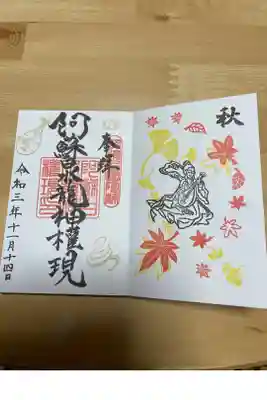 秋
奉拝
阿蘇白龍神権現
令和三年十一月十四日